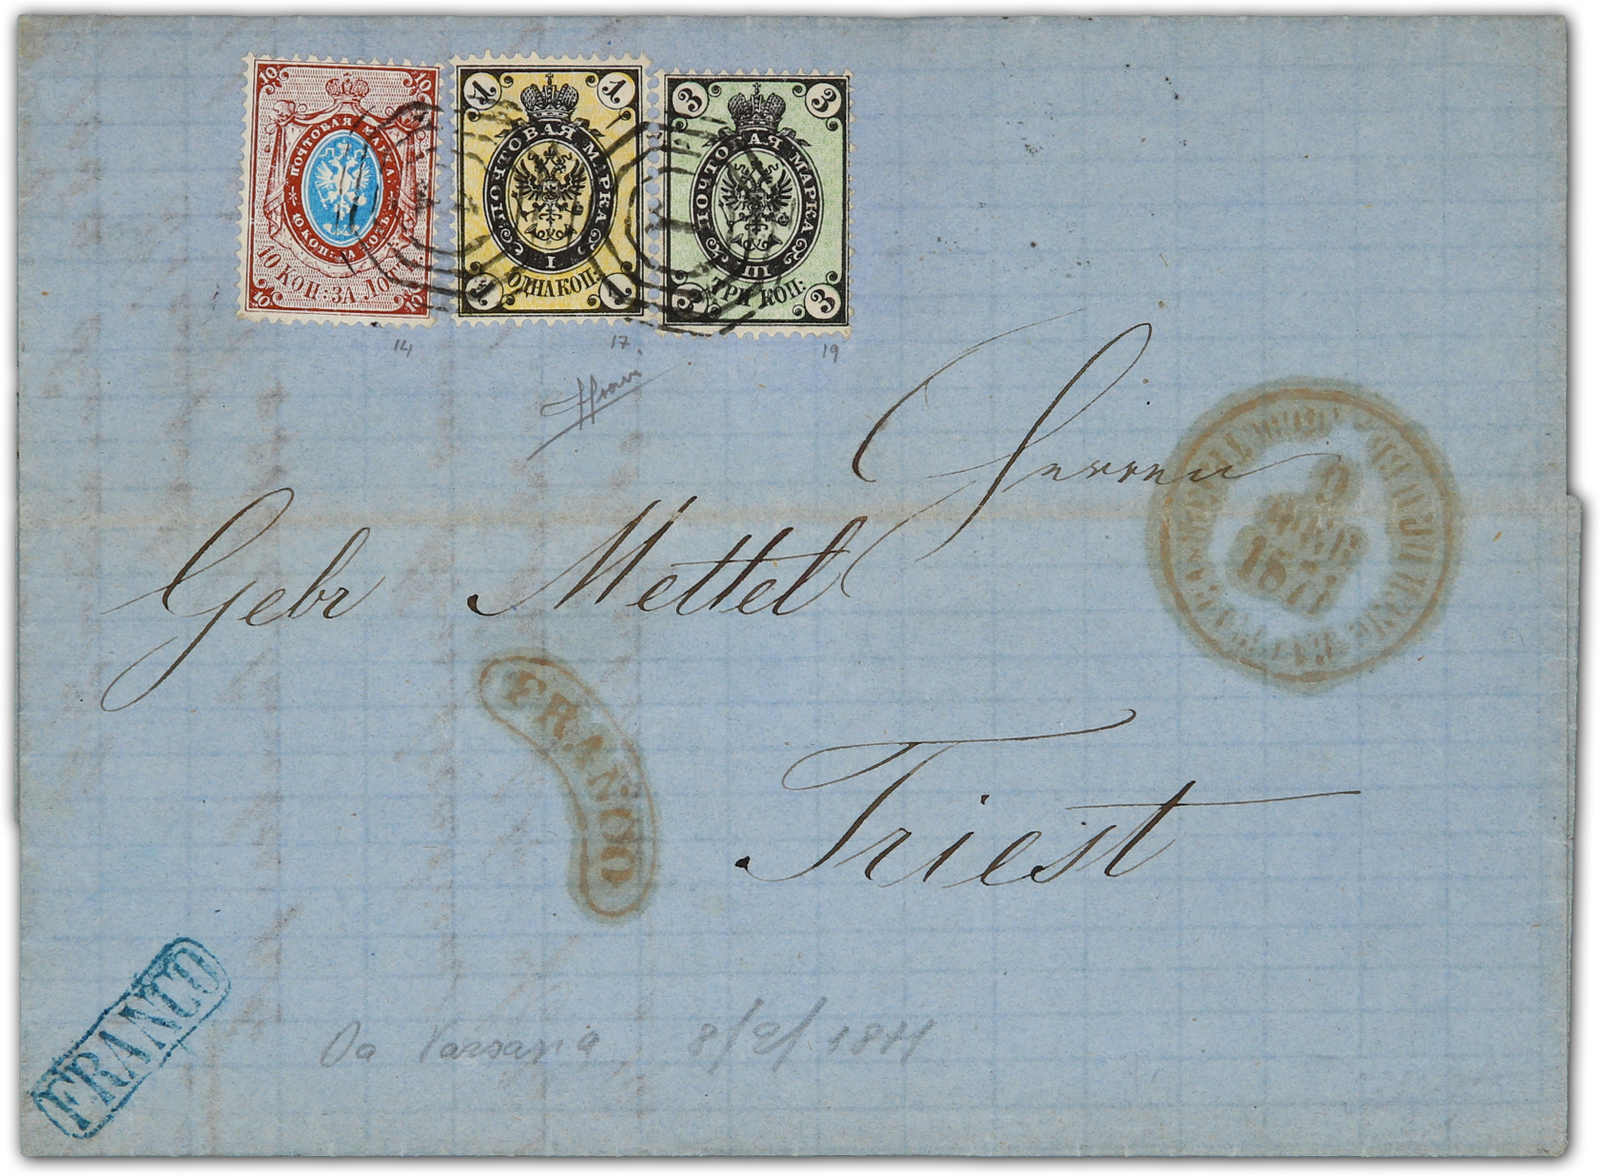 10 10
ПОЧТОВАЯ МАРКА
10 КОП: ЗА ЛОТЪ
10 КОП: ЗА ЛОТЪ
10 10
1 1
ПОЧТОВАЯ МАРКА
I
ОДНА КОП:
1 1
3 3
ПОЧТОВАЯ МАРКА
III
ТРИ КОП:
3 3
14 17 19
Herren
Gebr Mettel
9
ФЕВ
1871
FRANCO
Triest
FRANCO
Da Varsavia, 8/2/1871